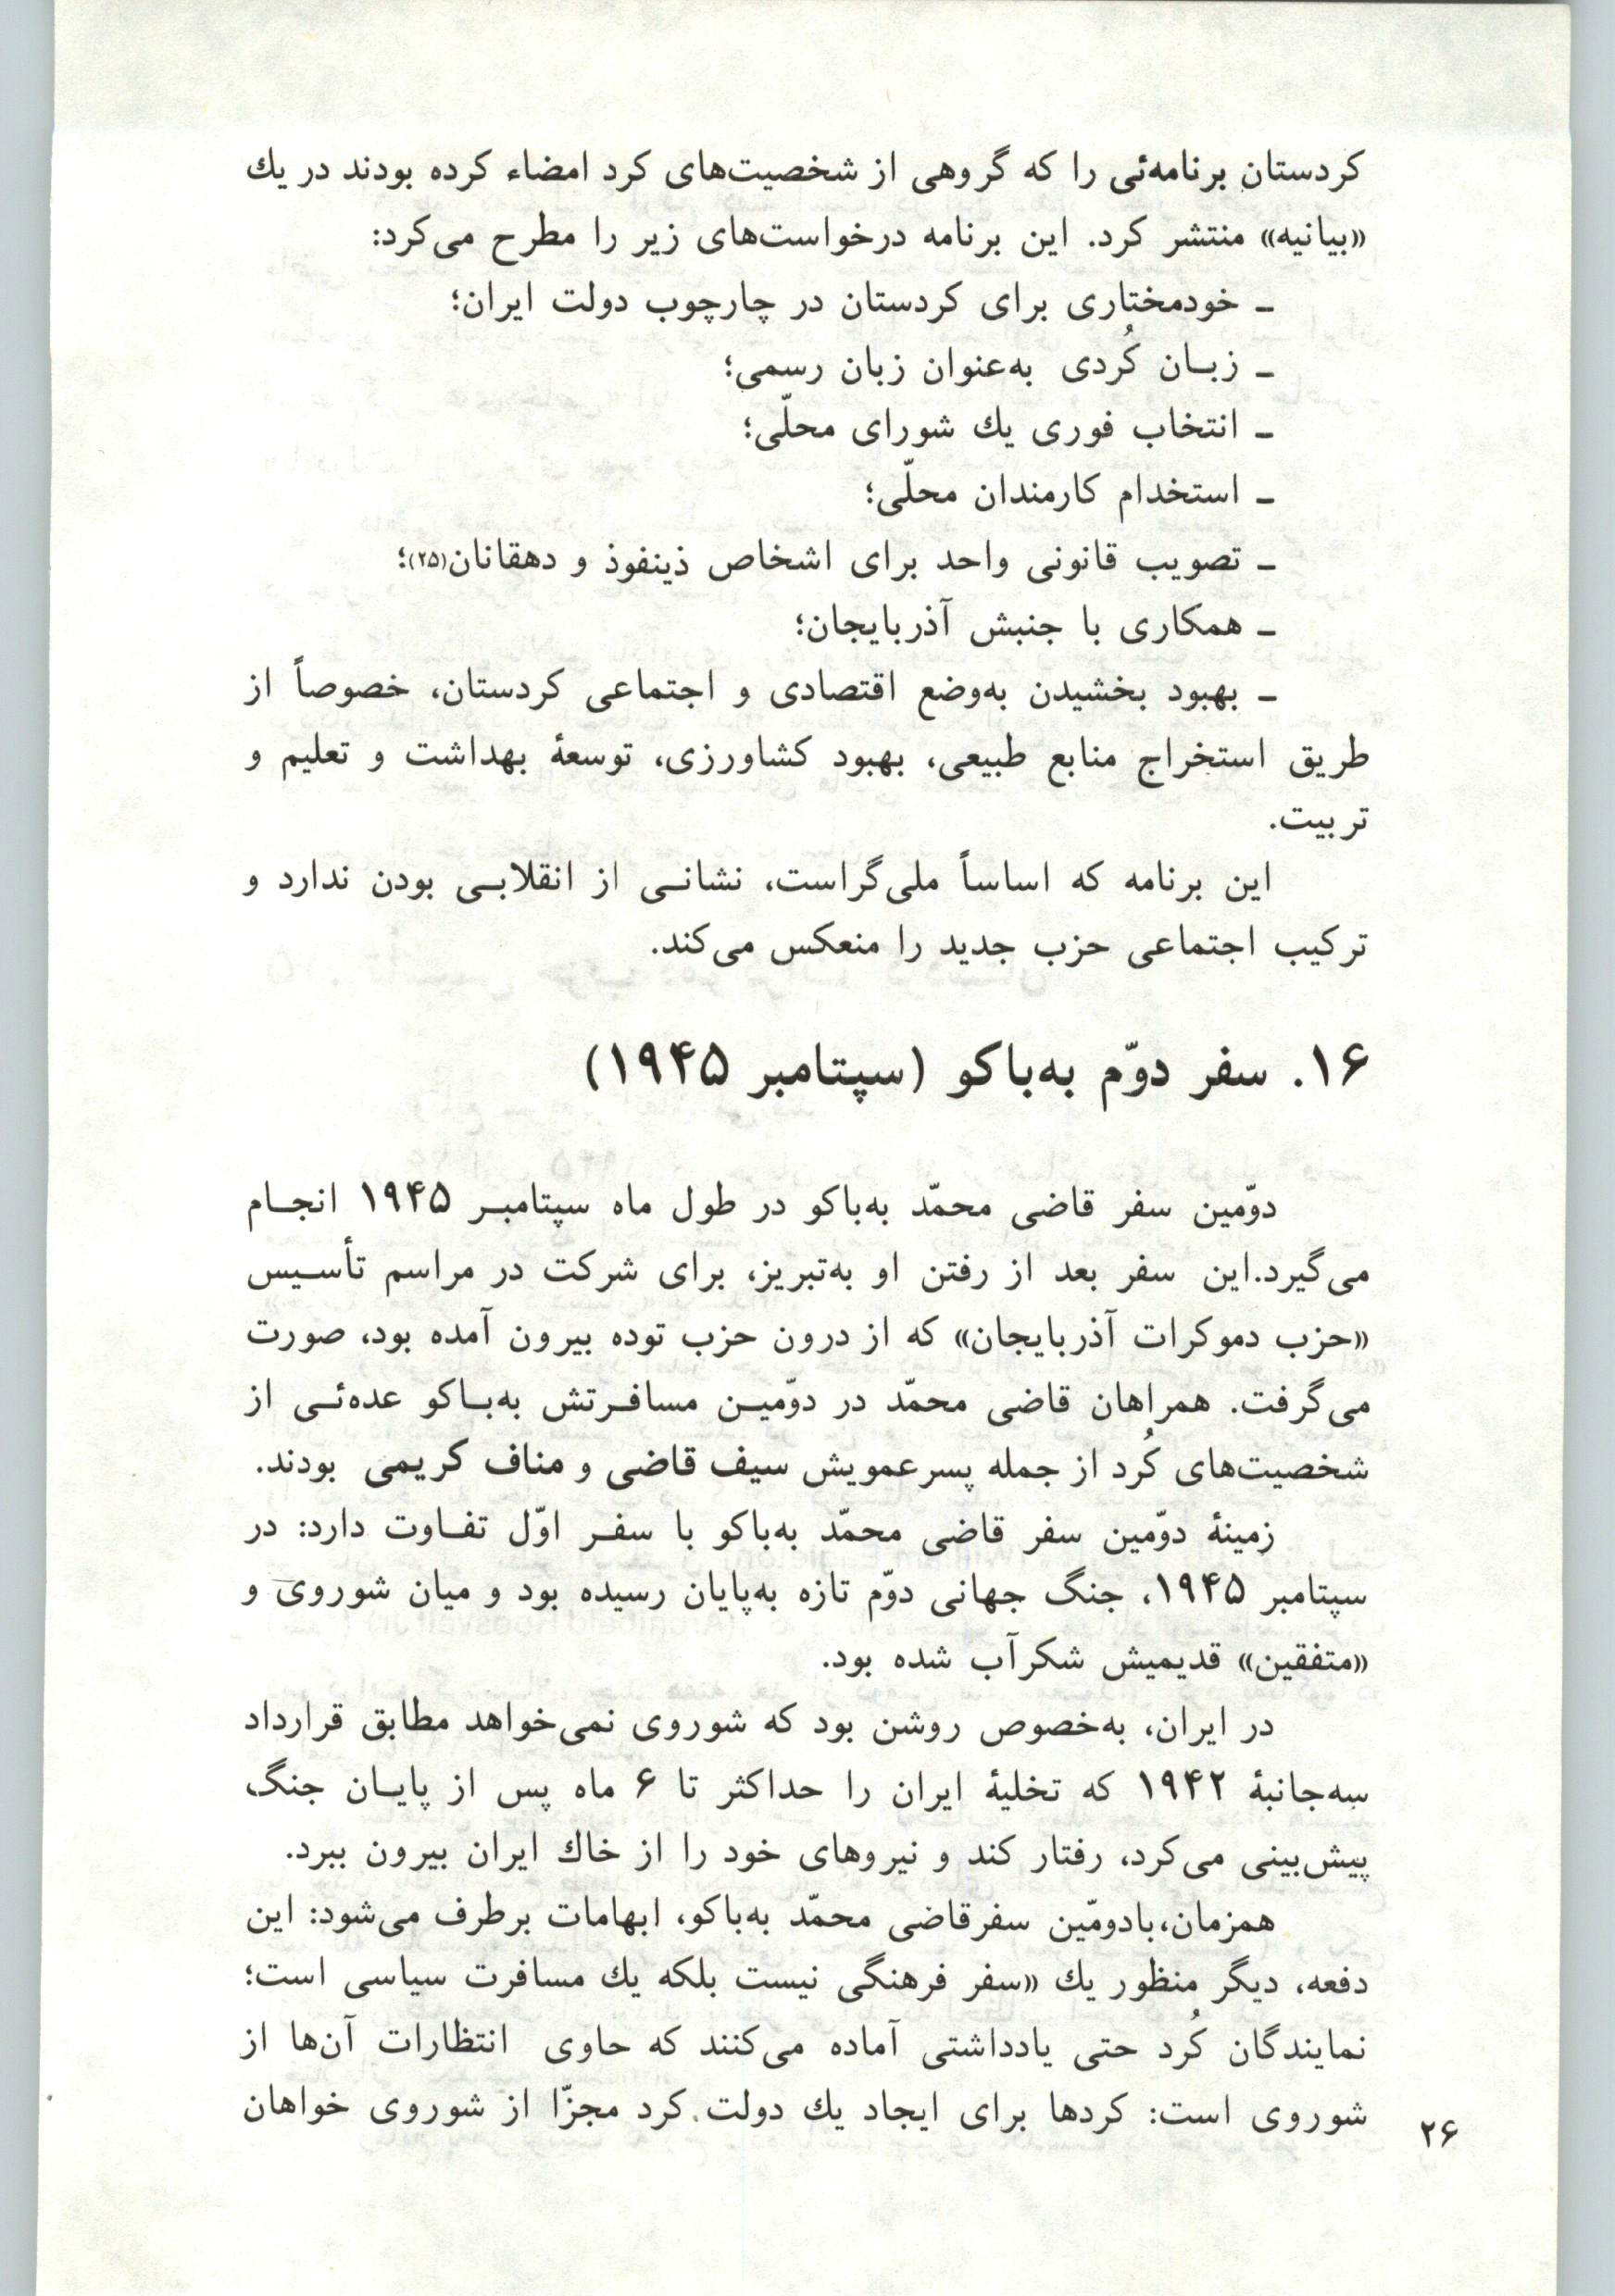 کردستان برنامه‌ئی را که گروهی از شخصیت‌های کرد امضاء کرده بودند در یك
«بیانیه» منتشر کرد. این برنامه درخواست‌های زیر را مطرح می‌کرد:
ـ خودمختاری برای کردستان در چارچوب دولت ایران؛
ـ زبـان کُردی به‌عنوان زبان رسمی؛
ـ انتخاب فوری یك شورای محلّی؛
ـ استخدام کارمندان محلّی؛
ـ تصویب قانونی واحد برای اشخاص ذینفوذ و دهقانان(۲۵)؛
ـ همکاری با جنبش آذربایجان؛
ـ بهبود بخشیدن به‌وضع اقتصادی و اجتماعی کردستان، خصوصاً از
طریق استخراج منابع طبیعی، بهبود کشاورزی، توسعهٔ بهداشت و تعلیم و
تربیت.
این برنامه که اساساً ملی‌گراست، نشانـی از انقلابـی بودن ندارد و
ترکیب اجتماعی حزب جدید را منعکس می‌کند.
۱۶. سفر دوّم به‌باکو (سپتامبر ۱۹۴۵)
دوّمین سفر قاضی محمّد به‌باکو در طول ماه سپتامبـر ۱۹۴۵ انجـام
می‌گیرد.این سفر بعد از رفتن او به‌تبریز، برای شرکت در مراسم تأسـیس
«حزب دموکرات آذربایجان» که از درون حزب توده بیرون آمده بود، صورت
می‌گرفت. همراهان قاضی محمّد در دوّمیـن مسافـرتش به‌بـاکو عده‌ئـی از
شخصیت‌های کُرد از جمله پسرعمویش سیف قاضی و مناف کریمی بودند.
زمینهٔ دوّمین سفر قاضی محمّد به‌باکو با سفـر اوّل تفـاوت دارد: در
سپتامبر ۱۹۴۵، جنگ جهانی دوّم تازه به‌پایان رسیده بود و میان شوروی و
«متفقین» قدیمیش شکرآب شده بود.
در ایران، به‌خصوص روشن بود که شوروی نمی‌خواهد مطابق قرارداد
سه‌جانبهٔ ۱۹۴۲ که تخلیهٔ ایران را حداکثر تا ۶ ماه پس از پایـان جنگ
پیش‌بینی می‌کرد، رفتار کند و نیروهای خود را از خاك ایران بیرون ببرد.
همزمان،بادومّین سفرقاضی محمّد به‌باکو، ابهامات برطرف می‌شود: این
دفعه، دیگر منظور یك «سفر فرهنگی نیست بلکه یك مسافرت سیاسی است؛
نمایندگان کُرد حتی یادداشتی آماده می‌کنند که حاوی انتظارات آن‌ها از
شوروی است: کردها برای ایجاد یك دولت کرد مجزّا از شوروی خواهان
۲۶